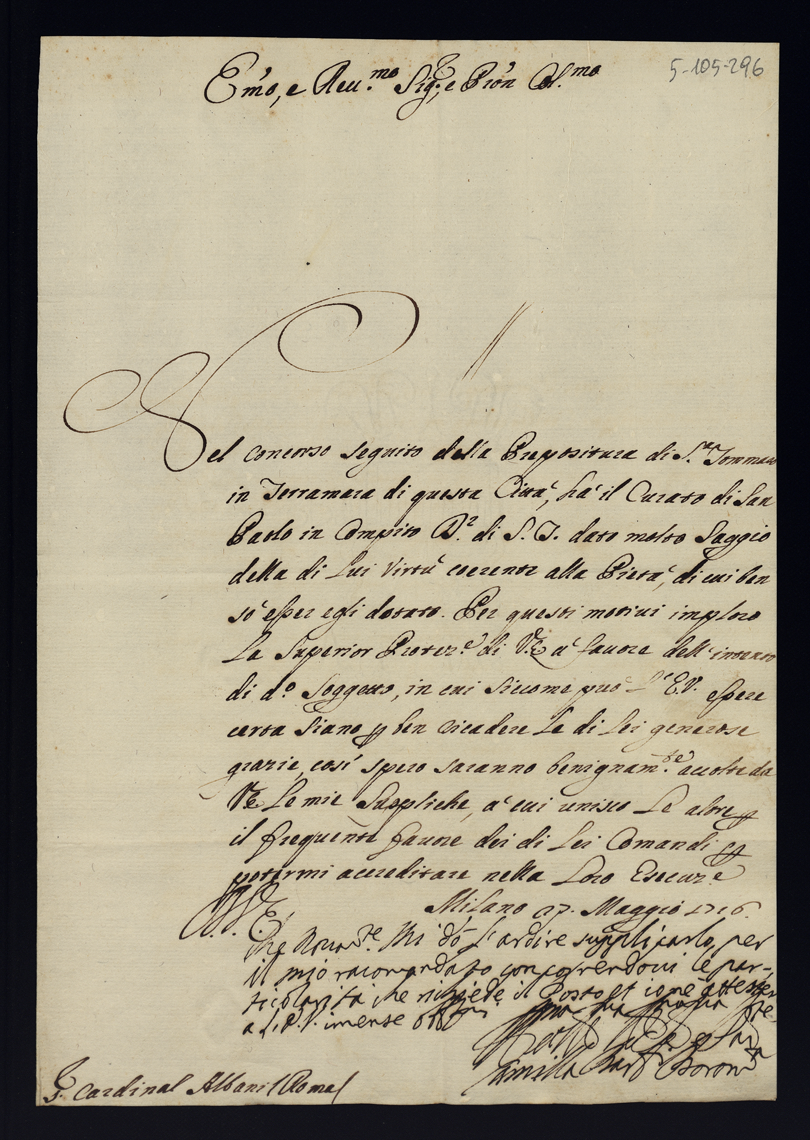 5-105-296
Em'o, e Reu.mo Sig.r e Pron Col.mo
Nel concorso seguito della Prepositura di S. Tommaso
in Terramara di questa Città, hà il Curato di San
Paolo in Compito D. di S. I. dato molto Saggio
della di Lui Virtù coerente alla Pietà, di cui ben
sò esser egli dotato. Per questi motiui imploro
La Superior Protez.e di V.E. à fauore dell'intento
di d.o Soggetto, in cui siccome può L'E.V. essere
certa siano p ben ricadere Le di Lei generose
grazie, così spero saranno benignam.te accolte da
V.E. Le mie Suppliche, à cui unisco Le altre p
il frequente fauore dei di Lei Comandi p
potermi accreditare nella Loro Esecuz.e
Milano 27. Maggio 1716.
V. E.
Che Mi dò l'ardire supplicarlo, per
il mio racomandato concorrendoui le par-
ticolarità che richiede il Posto et io
a L'E.V. imense
Camilla Bar
S. Cardinal Albani (Roma)